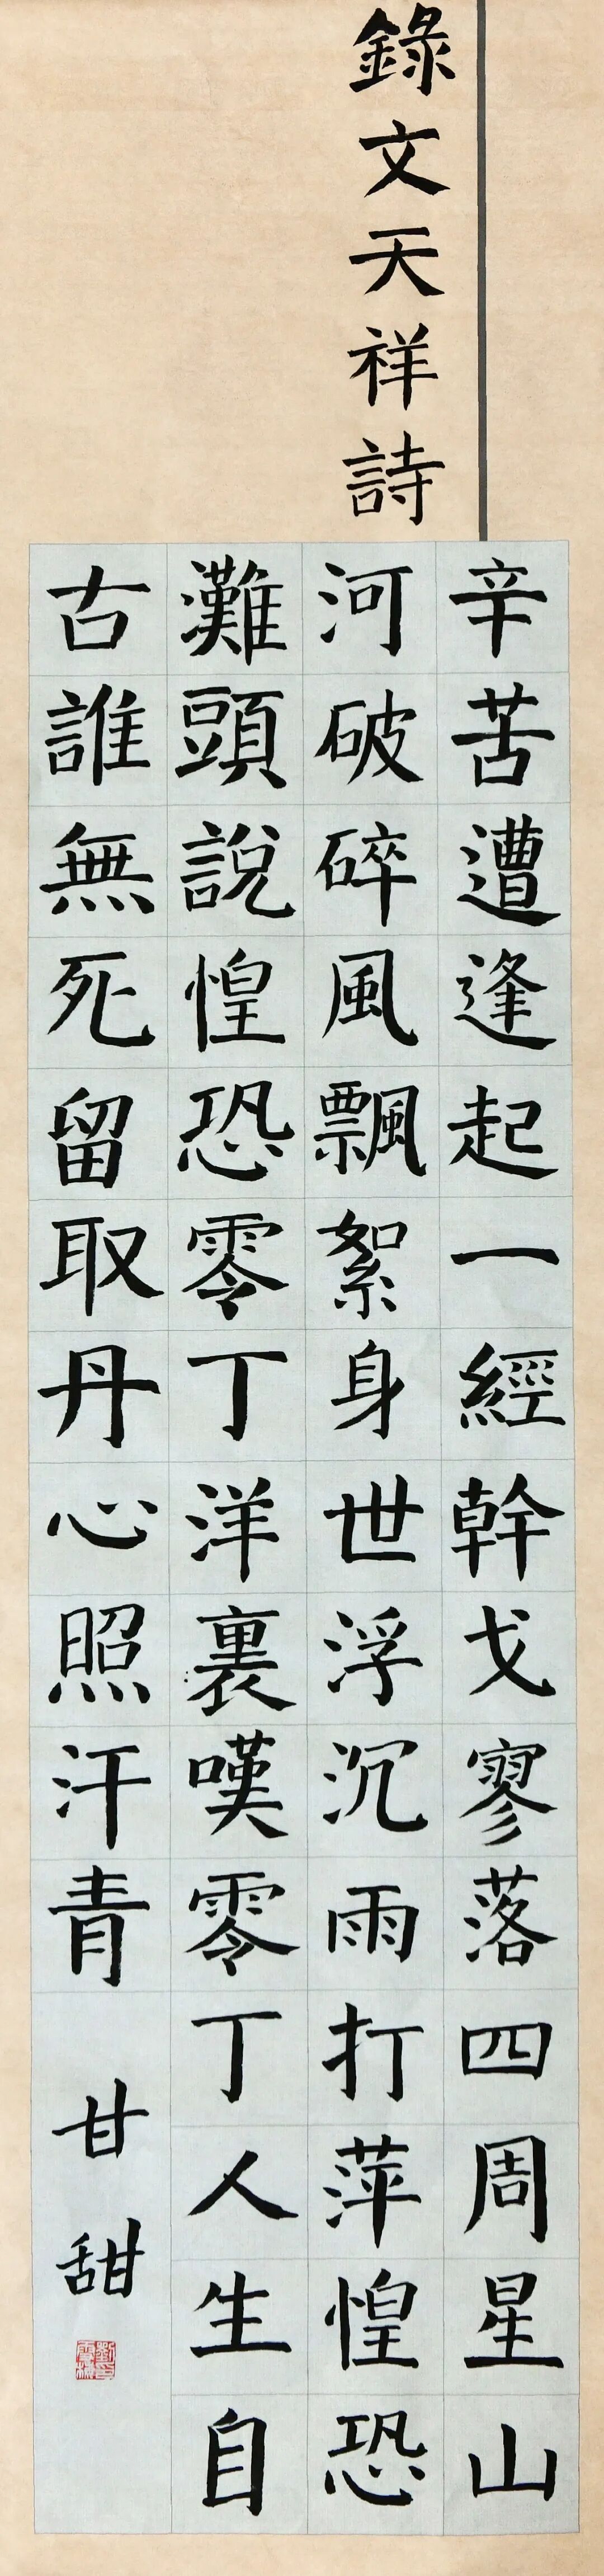 錄文天祥詩
辛苦遭逢起一經幹戈寥落四周星山
河破碎風飄絮身世浮沉雨打萍惶恐
灘頭說惶恐零丁洋裏嘆零丁人生自
古誰無死留取丹心照汗青
甘甜